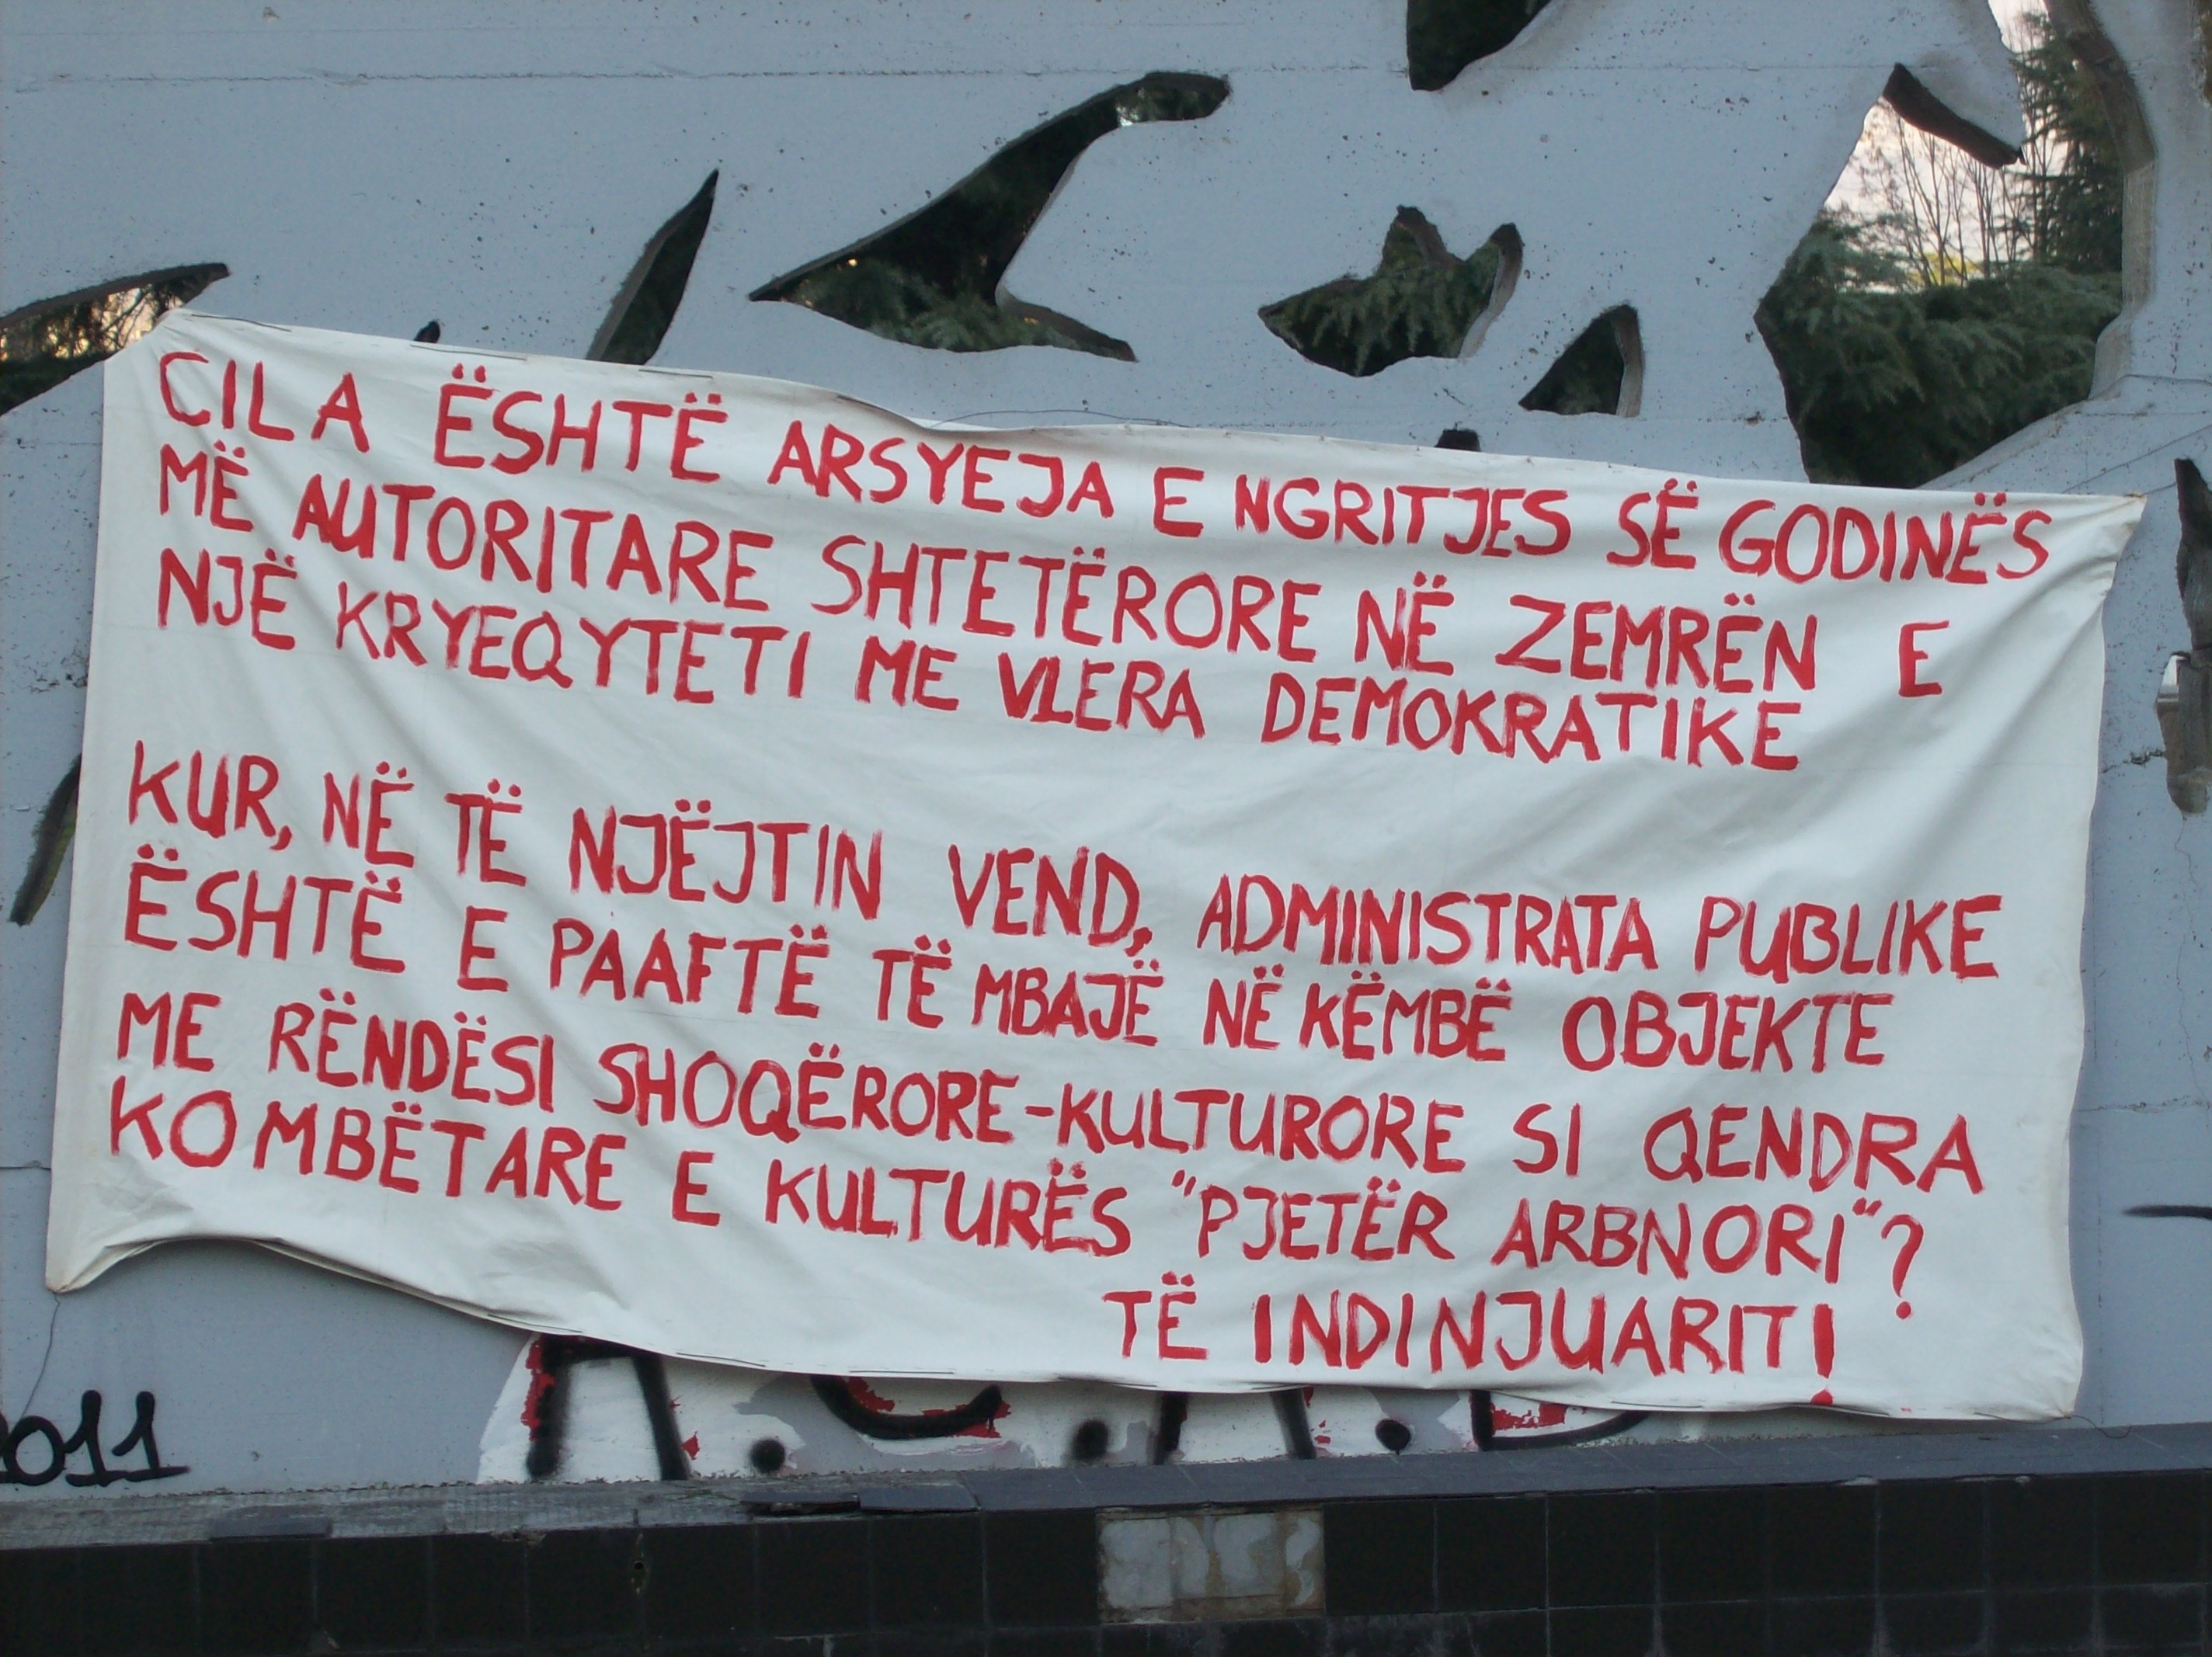 CILA ËSHTË ARSYEJA E NGRITJES SË GODINËS
MË AUTORITARE SHTETËRORE NË ZEMRËN E
NJË KRYEQYTETI ME VLERA DEMOKRATIKE
KUR, NË TË NJËJTIN VEND, ADMINISTRATA PUBLIKE
ËSHTË E PAAFTË TË MBAJË NË KËMBË OBJEKTE
ME RËNDËSI SHOQËRORE-KULTURORE SI QENDRA
KOMBËTARE E KULTURËS "PJETËR ARBNORI"?
TË INDINJUARIT!
A.C.A.B
2011